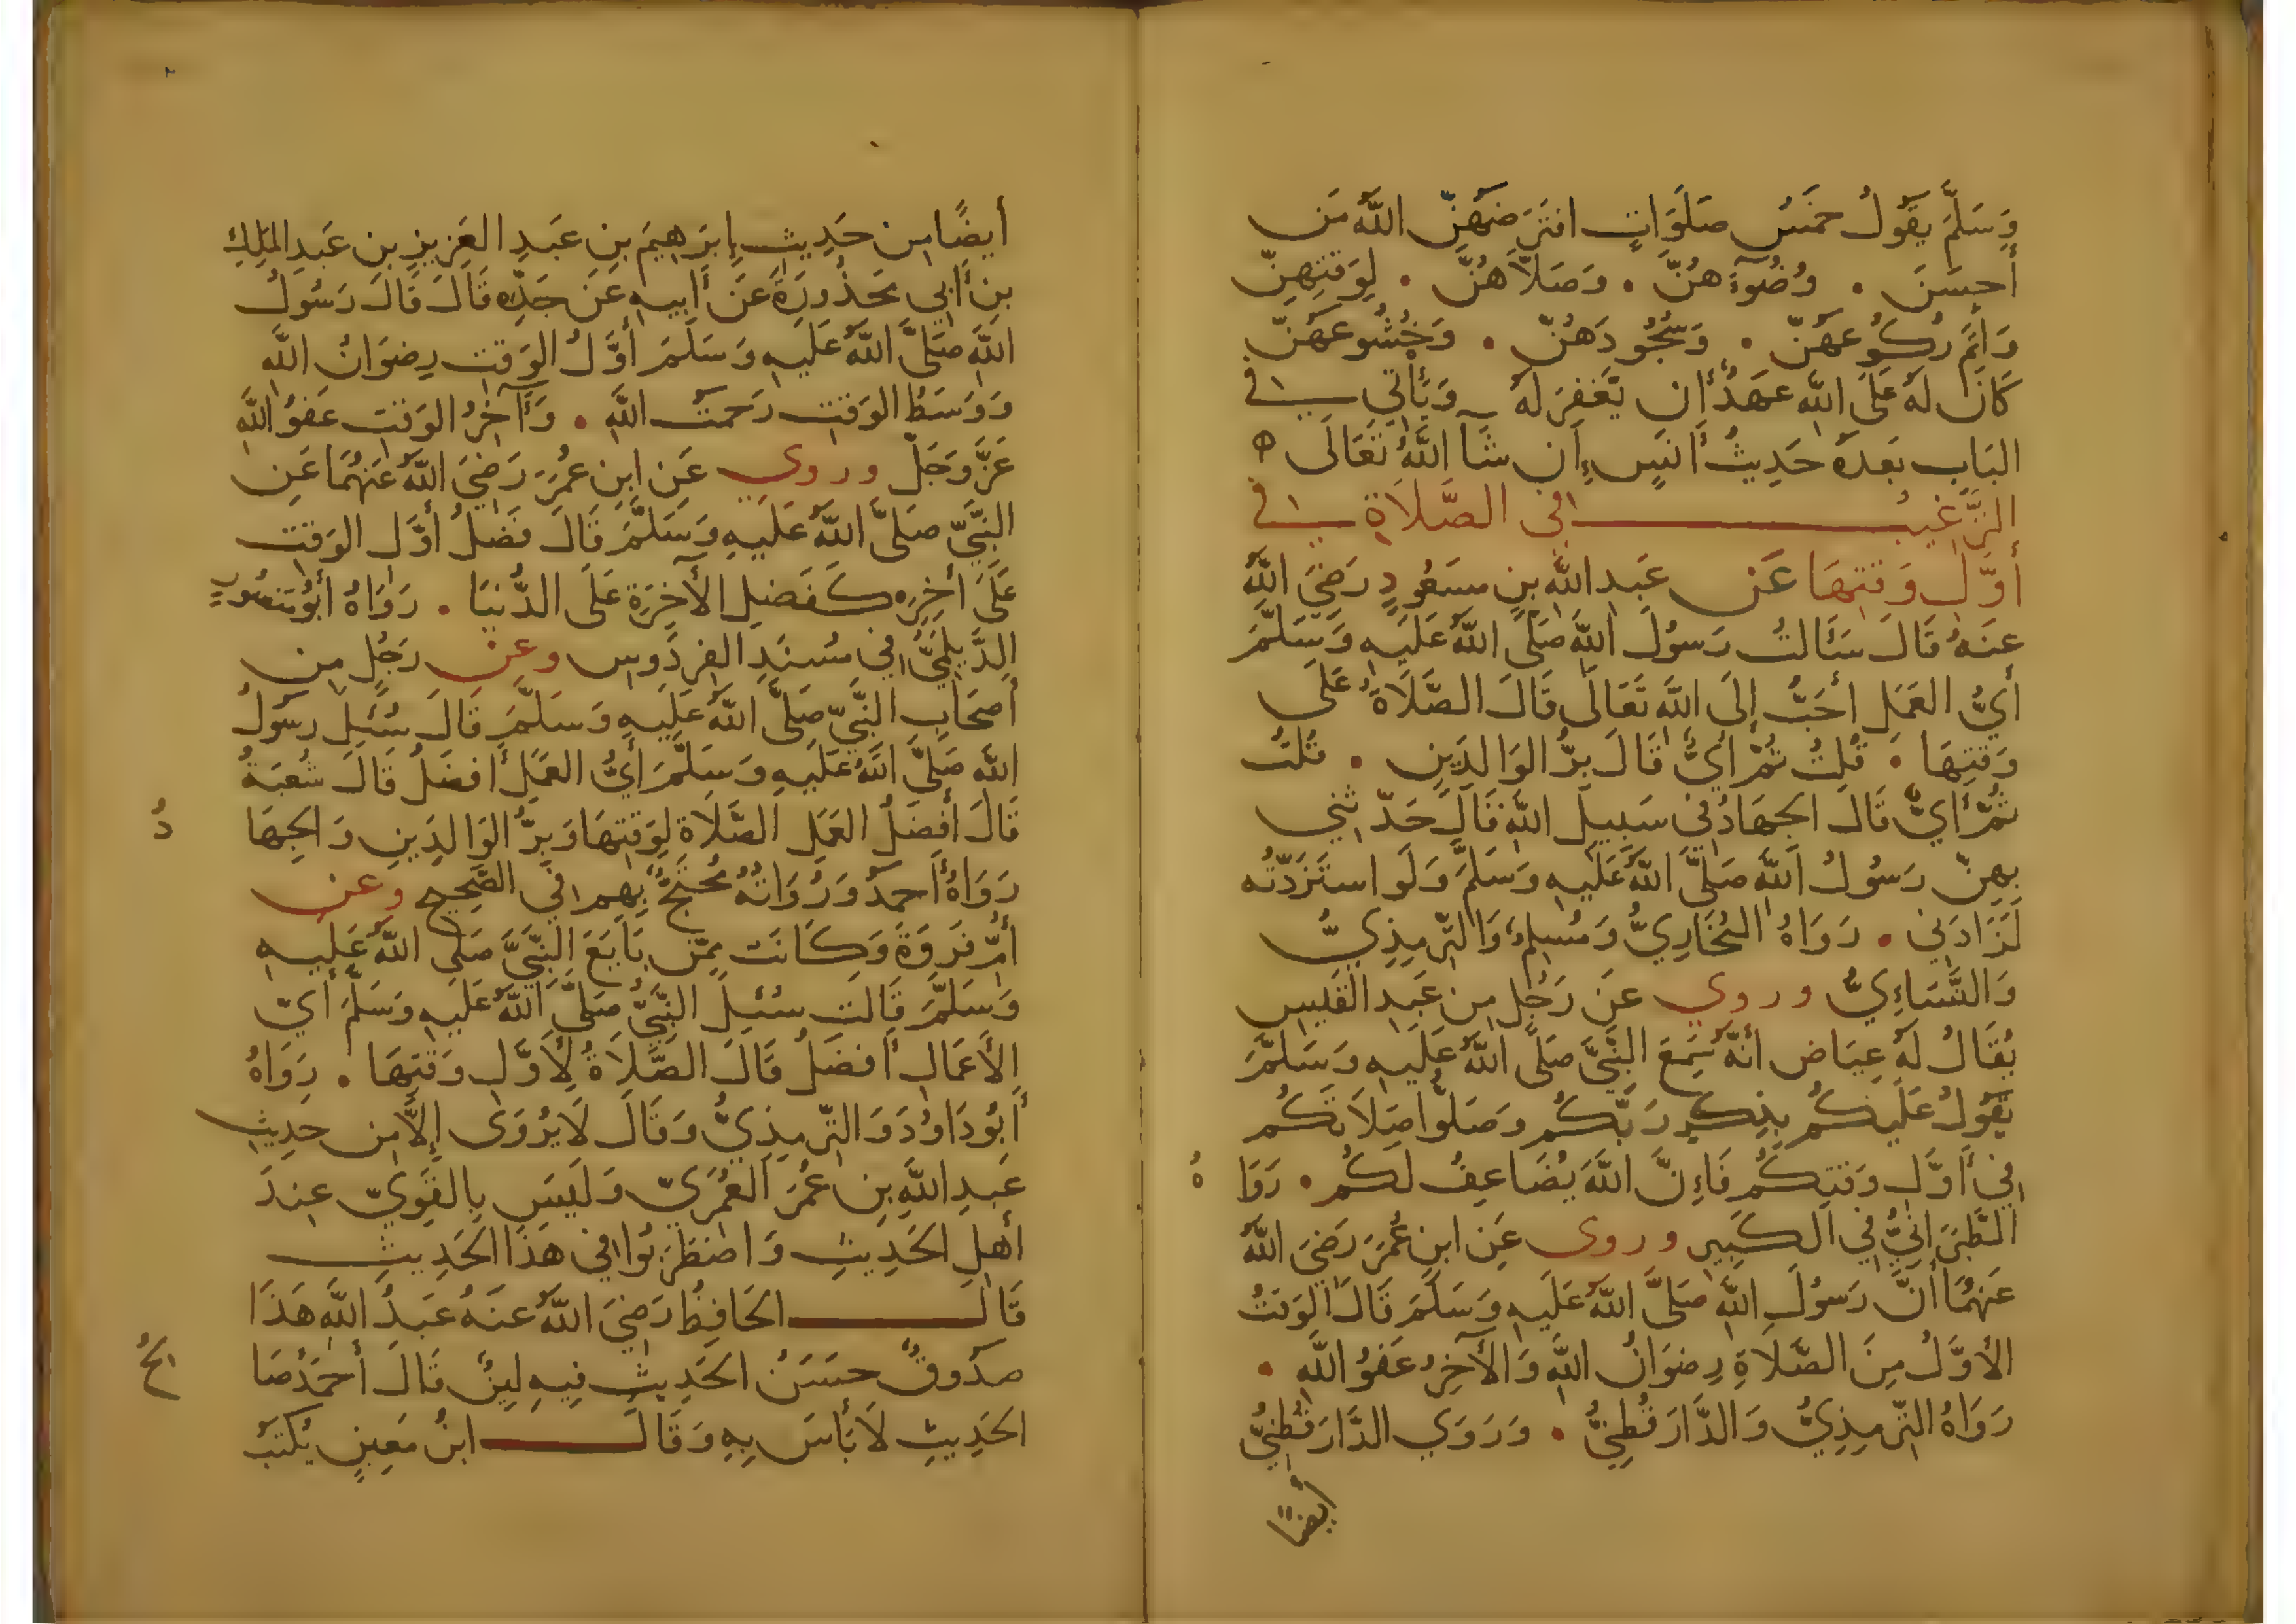 وَسَلَّمَ يَقُولُ خَمْسُ صَلَوَاتٍ افْتَرَضَهُنَّ اللَّهُ مَن
أَحسَنَ . وُضُوءَهُنَّ . وَصَلَّاهُنَّ . لِوَقتِهِنّ
وَأَتَمَّ رُكُوعَهُنّ . وَسُجُودَهُنّ . وَخُشُوعَهُنّ
كَانَ لَهُ عَلَى اللَّه عَهدٌ أَن يَّغفِرَ لَهُ وَيَأتِي في
البَابِ بَعدَهُ حَدِيثُ أَنَسٍ إِن شَآ اللَّهُ تَعَالَى ه
التَّرغِيبُ في الصَّلَاةِ في
أَوَّلِ وَقتِهَا عَن عَبدِ اللَّه بنِ مسعُودٍ رَضِيَ اللَّهُ
عَنهُ قَالَ سَئَالتُ رَسُولَ اللَّه صَلَّى اللَّهُ عَلَيهِ وَسَلَّمَ
أَيُّ العَمَلِ أَحَبُّ إِلَى اللَّه تَعَالَى قَالَ الصَّلَاةُ عَلَى
وَقتِهَا . قُلتُ ثُمَّ أَيٌّ قَالَ بِرُّ الوَالِدَينِ . قُلتُ
ثُمَّ أَيٌّ قَالَ الجِهَادُ في سَبِيلِ اللَّه قَالَ حَدَّثَنِي
بِهِنّ رَسُولُ اللَّه صَلَّى اللَّهُ عَلَيهِ وَسَلَّمَ وَلَوِ استَزَدتُّه
لَزَادَنِي . رَوَاهُ البُخَارِيُّ وَمُسلِمٌ وَالتِّرمِذِيُّ
وَالنَّسَاءِيُّ وروي عَن رَجُلٍ مِن عَبدِ القَيسِ
يُقَالُ لَهُ عِيَاض أَنَّهُ سَمِعَ النَّبِيَّ صَلَّى اللَّهُ عَلَيهِ وَسَلَّمَ
يَقُولُ عَلَيكُم بِذِكرِ رَبِّكُم وَصَلُّوا صَلَاتَكُم
فِي أَوَّلِ وَقتِكُم فَإِنَّ اللَّهَ يُضَاعِفُ لَكُم . رَوَا هُ
الطَّبَرَانِيُّ فِي الكَبِيرِ وروي عَنِ ابنِ عُمَرَ رَضِيَ اللَّهُ
عَنهُمَا أَنَّ رَسُولَ اللَّه صَلَّى اللَّهُ عَلَيهِ وَسَلَّمَ قَالَ الوَقتُ
الأَوَّلُ مِنَ الصَّلَاةِ رِضوَانُ اللَّهِ وَالآخِرُ عَفوُ اللَّهِ .
رَوَاهُ التِّرمِذِيُّ وَالدَّارَقُطنِيُّ . وَرَوَي الدَّارَقُطنِيُّ
أَيضًا
أَيضًا مِن حَدِيثِ إِبرَهِيمَ بنِ عَبدِ العَزِيزِ بنِ عَبدِ المَلِكِ
بنِ أَبِي مَحذُورَةَ عَن أَبِيهِ عَن جَدِّه قَالَ قَالَ رَسُولُ
اللَّهِ صَلَّى اللَّهُ عَلَيهِ وَسَلَّمَ أَوَّلُ الوَقتِ رِضوَانُ اللَّه
وَوَسَطُ الوَقتِ رَحمَتُ اللَّهِ . وَآخِرُ الوَقتِ عَفوُ اللَّهِ
عَزَّ وَجَلّ وروي عَنِ ابنِ عُمَرَ رَضِيَ اللَّهُ عَنهُمَا عَنِ
النَّبِيِّ صَلَّى اللَّهُ عَلَيهِ وَسَلَّمَ قَالَ فَضلُ أَوَّلِ الوَقتِ
عَلَى أَخِرِه كَفَضلِ الآخِرَةِ عَلَى الدُّنيَا . رَوَاهُ أَبُو مَنصُورٍ
الدَّيلَمِيُّ فِي مُسنَدِ الفِردَوسِ وعن رَجُلٍ مِن
أَصحَابِ النَّبِيِّ صَلَّى اللَّهُ عَلَيهِ وَسَلَّمَ قَالَ سُئِلَ رسُولُ
اللَّه صَلَّى اللَّهُ عَلَيهِ وَسَلَّمَ أَيُّ العَمَلِ أَفضَلُ قَالَ شُعبَةُ
قَالَ أَفضَلُ العَمَلِ الصَّلَاة لِوَقتِهَا وَبِرُّ الوَالِدَينِ وَالجِهَا دُ
رَوَاهُ أَحمَدُ وَرُوَاتُهُ مُحتَجٌّ بِهِم في الصَّحِيحِ وعن
أُمِّ فَروَةَ وَكَانَت مِمَّن بَايَعَ النَّبِيَّ صَلَّى اللَّهُ عَلَيهِ
وَسَلَّمَ قَالَت سُئِلَ النَّبِيُّ صَلَّى اللَّهُ عَلَيهِ وَسَلَّمَ أَيُّ
الأَعمَالِ أَفضَلُ قَالَ الصَّلَاةُ لِأَوَّلِ وَقتِهَا . رَوَاهُ
أَبُودَاوُدَ وَالتِّرمِذِيُّ وَقَالَ لَا يُروَى إِلَّا مِن حَدِيثِ
عَبدِ اللَّهِ بنِ عُمَرَ العُمَرِيّ وَلَيسَ بِالقَوِيِّ عِندَ
أَهلِ الحَدِيثِ وَاضطَرَبُوا في هَذَا الحَدِيثِ
قَالَ الحَافِظُ رَضِيَ اللَّهُ عَنهُ عَبدُ اللَّه هَذَا
صَدُوقٌ حسَنُ الحَدِيثِ فِيهِ لِينٌ قَالَ أَحمَدُ صَا لحُ
الحَدِيثِ لَا بَأسَ بِهِ وَقَالَ ابنُ مَعِينٍ يُكتَبُ